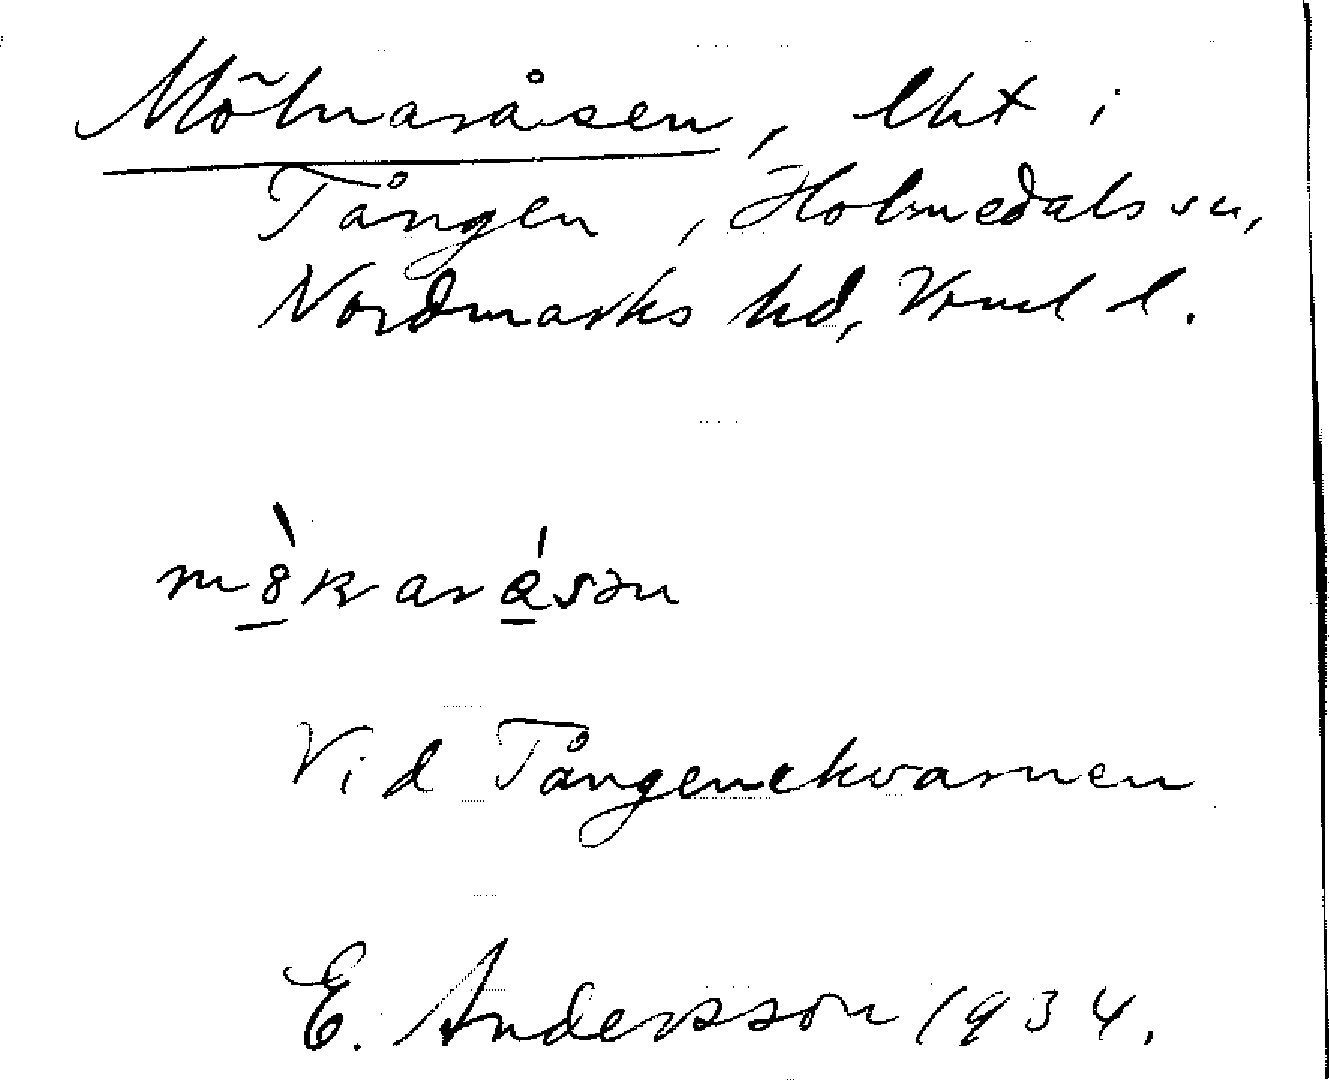 Mölnaråsen, lht i
Tången, Holmedals sn,
Nordmarks hd, Vrml l.
Vid Tångenekvarnen
E. Andersson 1934.